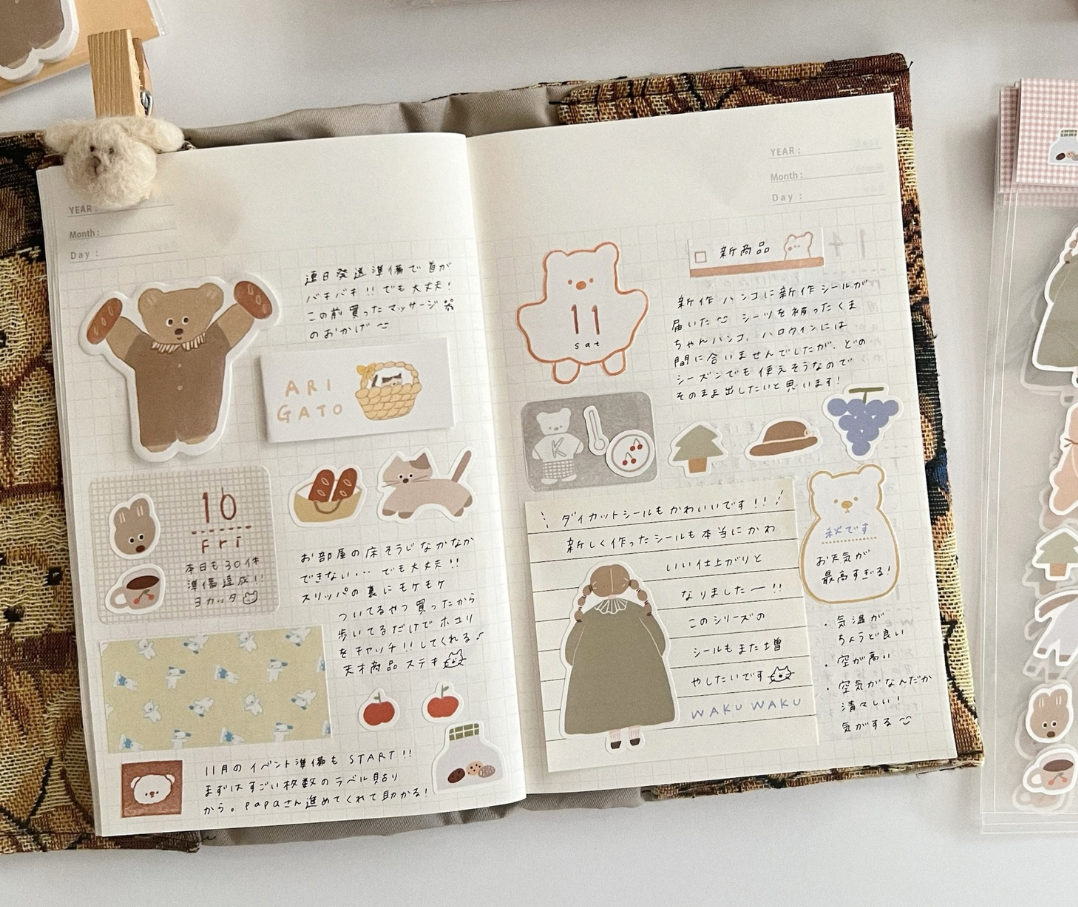 YEAR :
Month :
Day :
連日発送準備で首が
バキバキ!! でも大丈夫!
この前買ったマッサージ
のおかげ
ARI
GATO
10
Fri
本日も30件
準備達成!!
ヨカッタ
お部屋の床そうじなかなか
できない... でも大丈夫!!
スリッパの裏にモケモケ
ついてるやつ買ったから
歩いてるだけでホコリ
をキャッチ!! してくれる♪
天才商品 ステキ
11月のイベント準備も START!!
まずはすごい枚数のラベル貼り
から。papaさん進めてくれて助かる!
YEAR :
Month :
Day :
11
Sat
新商品
新作ハンコに新作シールが
届いた シーツを被ったくま
ちゃんハンコ、ハロウィンには
間に合いませんでしたが、どの
シーズンでも使えそうなので
そのまま出したいと思います!
K
ダイカットシールもかわいいです!!
新しく作ったシールも本当にかわ
いい仕上がりと
なりましたー!!
このシリーズの
シールもまた増
やしたいです
WAKU WAKU
秋です
お天気が
最高すぎる!
・気温が
ちょうど良い
・空が高い
・空気がなんだか
清々しい!
気がする